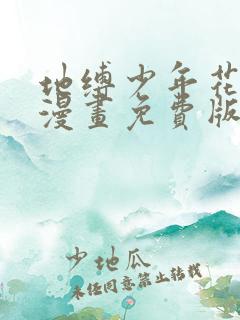 地缚少年花
漫畫免費版
少地瓜
未经同意禁止转载